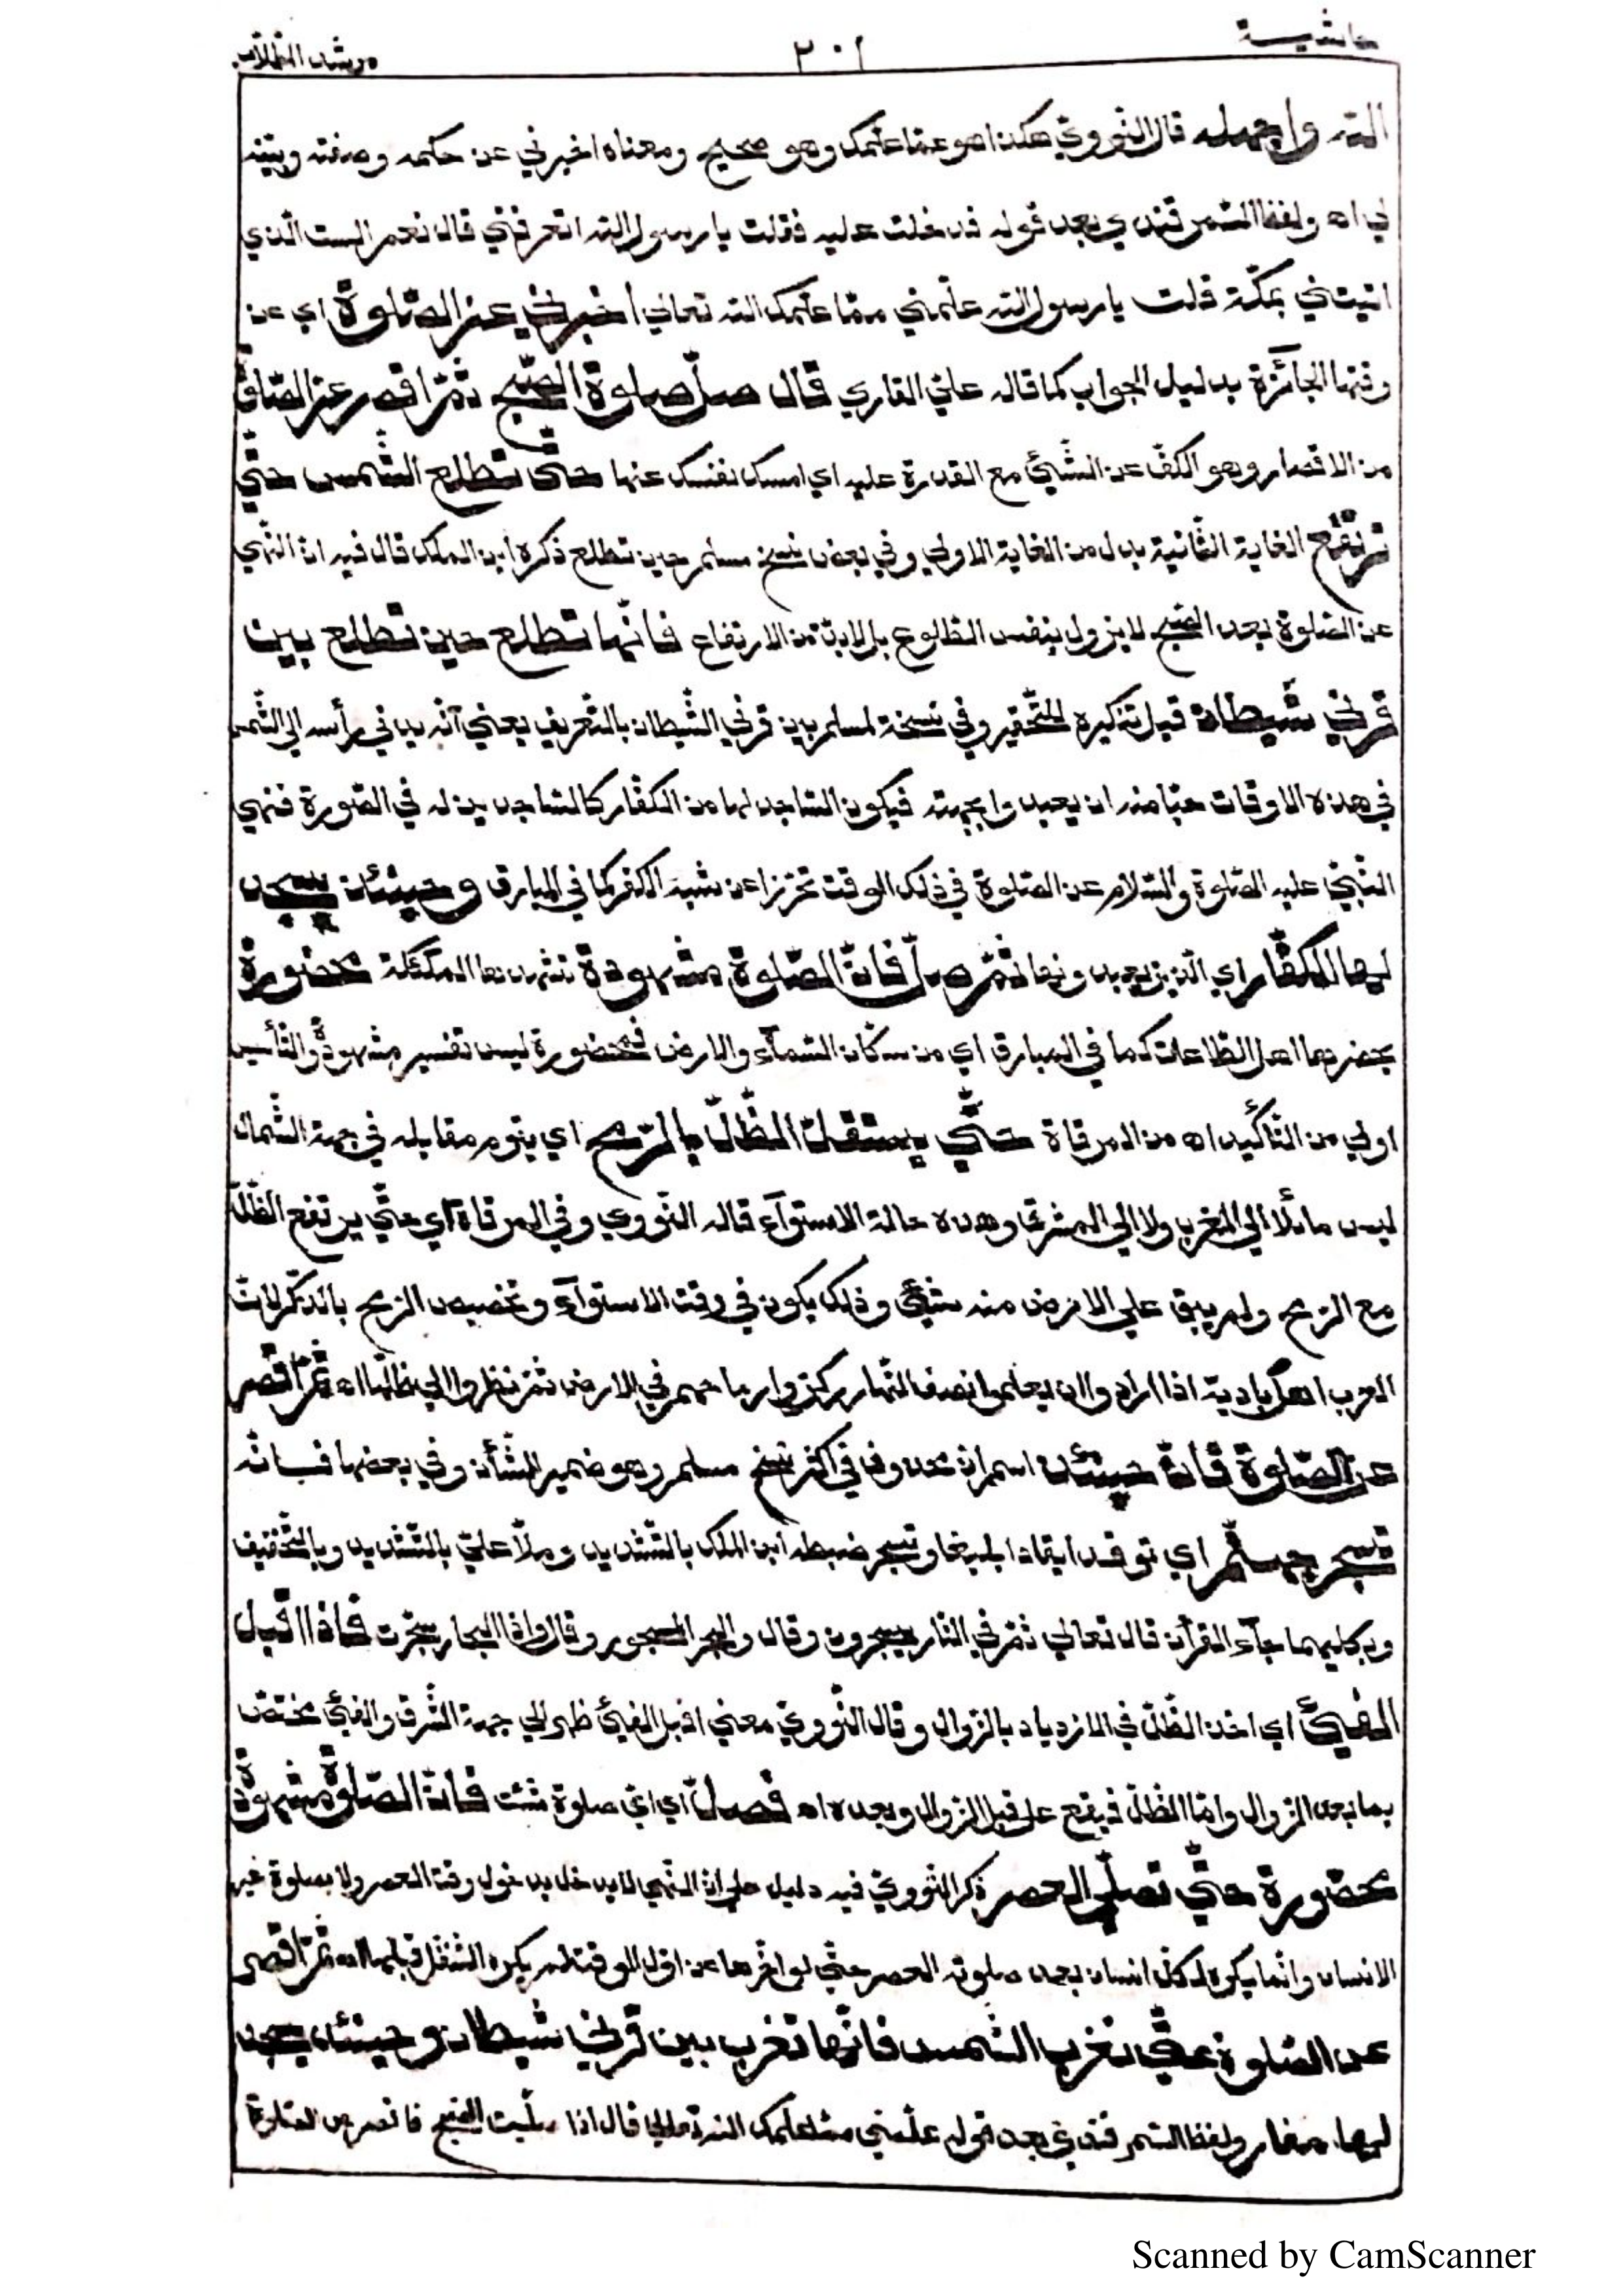 حاشية ٢٠١ مرشد الطلاب
الله واجهله قال النّوويّ هكذا هو عمّا علّمك وهو صحيح ومعناه اخبرني عن حكمه وصفته وبيّنه
لي اه ولفظ السّمرقندي بعد قوله فدخلت عليه فقلت يا رسول الله اتعرفني قال نعم الست الّذي
اتيتني بمكّة قلت يا رسول الله علّمني ممّا علّمك الله تعالي اخبرني عن الصّلوة اي عن
وقتها الجائزة بدليل الجواب كما قاله عليّ القاري قال صلّ صلوة الصّبح ثمّ اقصر عن الصّلوة
من الاقصار وهو الكفّ عن الشّيئ مع القدرة عليه اي امسك نفسك عنها حتّي تطلع الشّمس حتّي
ترتفع الغاية الثّانية بدل من الغاية الاولي وفي بعض نسخ مسلم حين تطلع ذكره ابن الملك قال فيه انّ النّهي
عن الصّلوة بعد الصّبح لا يزول بنفس الطّلوع بل لا بدّ من الارتفاع فانّها تطلع حين تطلع بين
قرني شيطان قيل تنكيره للتّحقير وفي نسخة لمسلم بين قرني الشّيطان بالتّعريف يعني انّه يدني رأسه الي الشّمس
في هذه الاوقات حبّا منه ان يعبدوا بجهته فيكون السّاجد لها من الكفّار كالسّاجدين له في الصّورة فنهي
النّبيّ عليه الصّلوة والسّلام عن الصّلوة في ذلك الوقت تحرّزا عن شبه الكفر كما في المبارق وحينئذ يسجد
لها الكفّار اي الّذين يعبدونها ثمّ صلّ فانّ الصّلوة مشهودة تشهدها الملئكة محضورة
يحضرها اهل الطّاعات كما في المبارق اي من سكّان السّمآء والارض فمحضورة ليس تفسير مشهودة والتّأسيس
اولي من التّأكيد اه من المرقاة حتّي يستقلّ الظّلّ بالرّمح اي يقوم مقابله في جهة الشّمال
ليس مائلا الي المغرب ولا الي المشرق وهذه حالة الاستوآء قاله النّووي وفي المرقاة اي حتّي يرتفع الظّلّ
مع الرّمح ولم يبق علي الارض منه شيئ وذلك يكون في وقت الاستوآء وتخصيص الرّمح بالذّكر لانّ
العرب اهل بادية اذا ارادوا ان يعلموا نصف النّهار ركزوا رماحهم في الارض ثمّ نظروا الي ظلّها اه ثمّ اقصر
عن الصّلوة فانّ حينئذ اسم انّ محذوف في اكثر نسخ مسلم وهو ضمير الشّأن وفي بعضها فانّه
تسجر جهنّم اي توقد ايقادا بليغا وتسجر ضبطه ابن الملك بالتّشديد وملّا عليّ بالتّشديد وبالتّخفيف
وبكليهما جآء القرآن قال تعالي ثمّ في النّار يسجرون وقال والبحر المسجور وقال واذا البحار سجّرت فاذا اقبل
الفيئ اي اخذ الظّلّ في الازدياد بالزّوال وقال النّوويّ معني اقبل الفيئ ظهر الي جهة الشّرق والفيئ مختصّ
بما بعد الزّوال وامّا الظّلّ فيقع علي قبل الزّوال وبعده اه فصلّ اي ايّ صلوة شئت فانّ الصّلوة مشهودة
محضورة حتّي تصلّي العصر ذكر النّوويّ فيه دليل علي انّ النّهي لا يدخل بدخول وقت العصر ولا بصلوة غير
الانسان وانّما يكره لكلّ انسان بعد صلوته العصر حتّي لو اخّرها عن اوّل الوقت لم يكره التّنفّل قبلها اه ثمّ اقصر
عن الصّلوة حتّي تغرب الشّمس فانّها تغرب بين قرني شيطان وحينئذ يسجد
لها كفار ولفظ السّمرقنديّ بعد قوله علّمني ممّا علّمك الله تعالي قال اذا صلّيت الصّبح فاقصر عن الصّلوة
Scanned by CamScanner